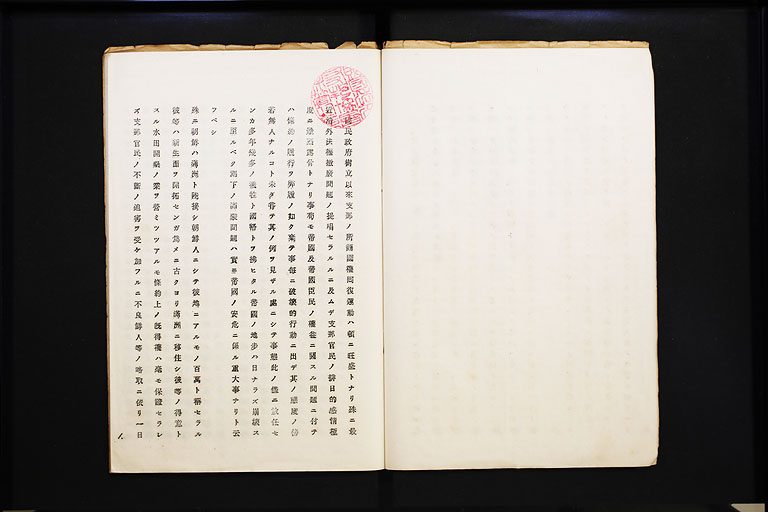 國民政府樹立以來支那ノ所謂國權囘復運動ハ頓ニ旺盛トナリ殊ニ最
近治外法權撤廢問題ノ提唱セラルルニ及ムデ支那官民ノ排日的感情極
度ニ濃厚露骨トナリ事苟モ帝國及帝國臣民ノ權益ニ關スル問題ニ付テ
ハ條約ノ履行ヲ弊履ノ如ク棄テ事每ニ破壞的行動ニ出デ其ノ態度ノ傍
若無人ナルコト未ダ嘗テ其ノ例ヲ見ザル處ニシテ事態此ノ儘ニ放任セ
ンカ多年幾多ノ犧牲ト國帑トヲ拂ヒタル帝國ノ地步ハ日ナラズ崩壞ス
ルニ至ルベク滿下ノ滿蒙問題ハ實ニ帝國ノ安危ニ係ル重大事ナリト云
フベシ
殊ニ朝鮮ハ滿洲ト陸接シ朝鮮人ニシテ彼地ニアルモノ百萬ト稱セラル
彼等ハ新生面ヲ開拓センガ爲メニ古クヨリ滿洲ニ移住シ彼等ノ得意ト
スル水田開墾ノ業ヲ營ミツツアルモ條約上ノ既得權ハ毫モ保證セラレ
ズ支那官民ノ不斷ノ迫害ヲ受ケ加フルニ不良鮮人等ノ略取ニ依リ一日